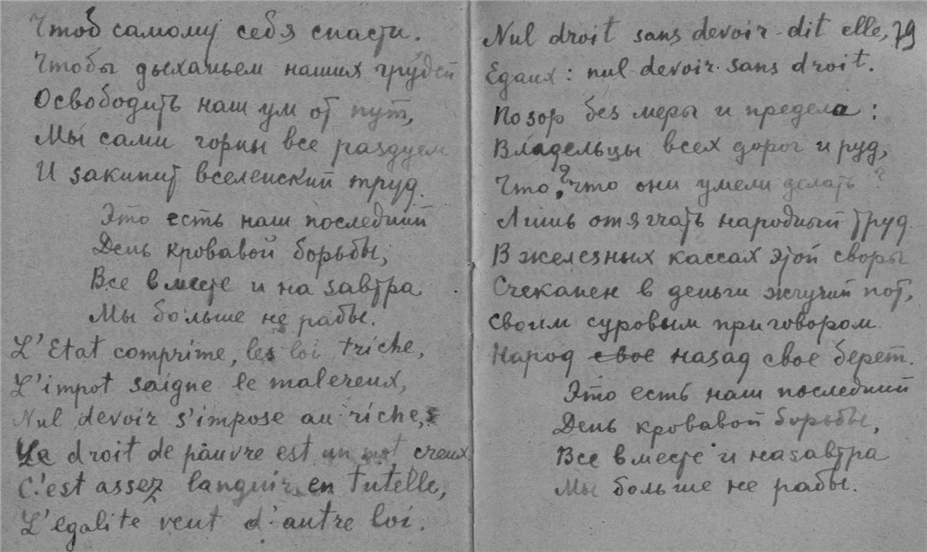 Чтоб самому себя спасти.
Чтобы дыханьем наших грудей
Освободить наш ум от пут,
Мы сами горны все раздуем
И закипит вселенский труд.
Это есть наш последний
День кровавой борьбы,
Все вместе и на завтра
Мы больше не рабы.
L'Etat comprime, les loi triche,
L'impot saigne le malereux,
Nul devoir s'impose au riche,
La droit de pauvre est un mot creux
C'est assez languir en tutelle,
L'egalite veut d'autre loi.
Nul droit sans devoir dit elle, 79
Egaux: nul devoir sans droit.
Позор без меры и предела:
Владельцы всех дорог и руд,
Что? что они умели делать?
Лишь отягчать народный труд.
В железных кассах этой своры
Счеканен в деньги жгучий пот,
Своим суровым приговором
Народ свое назад свое берет.
Это есть наш последний
День кровавой борьбы,
Все вместе и назавтра
Мы больше не рабы.